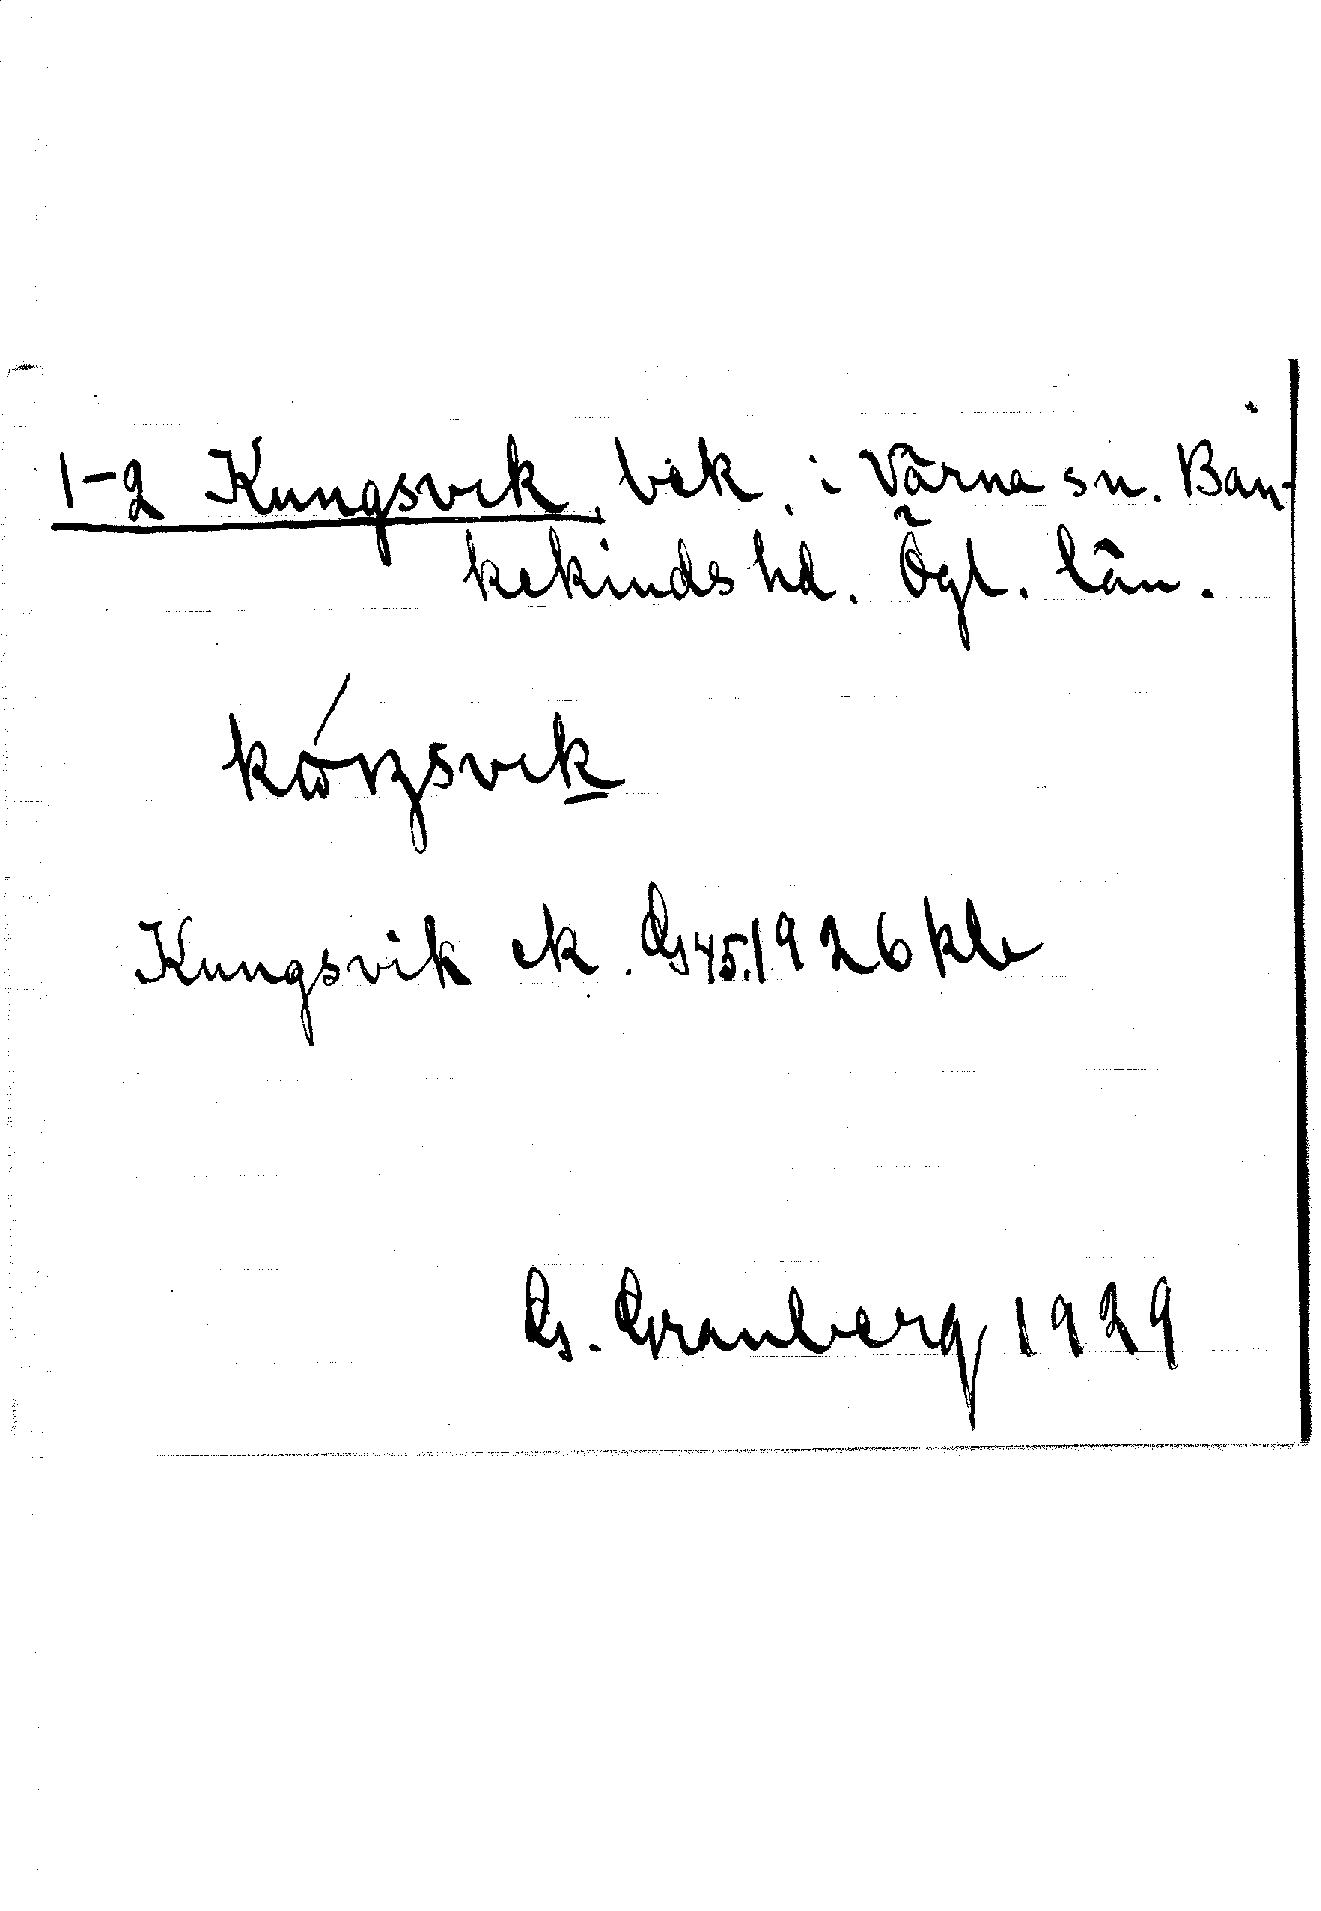 1-2 Kungsvik, bek. i Värna sn. Ban-
kekinds hd. Ögl. län.
Kungsvik ek. GS45.1926 kle
G. Granberg 1929